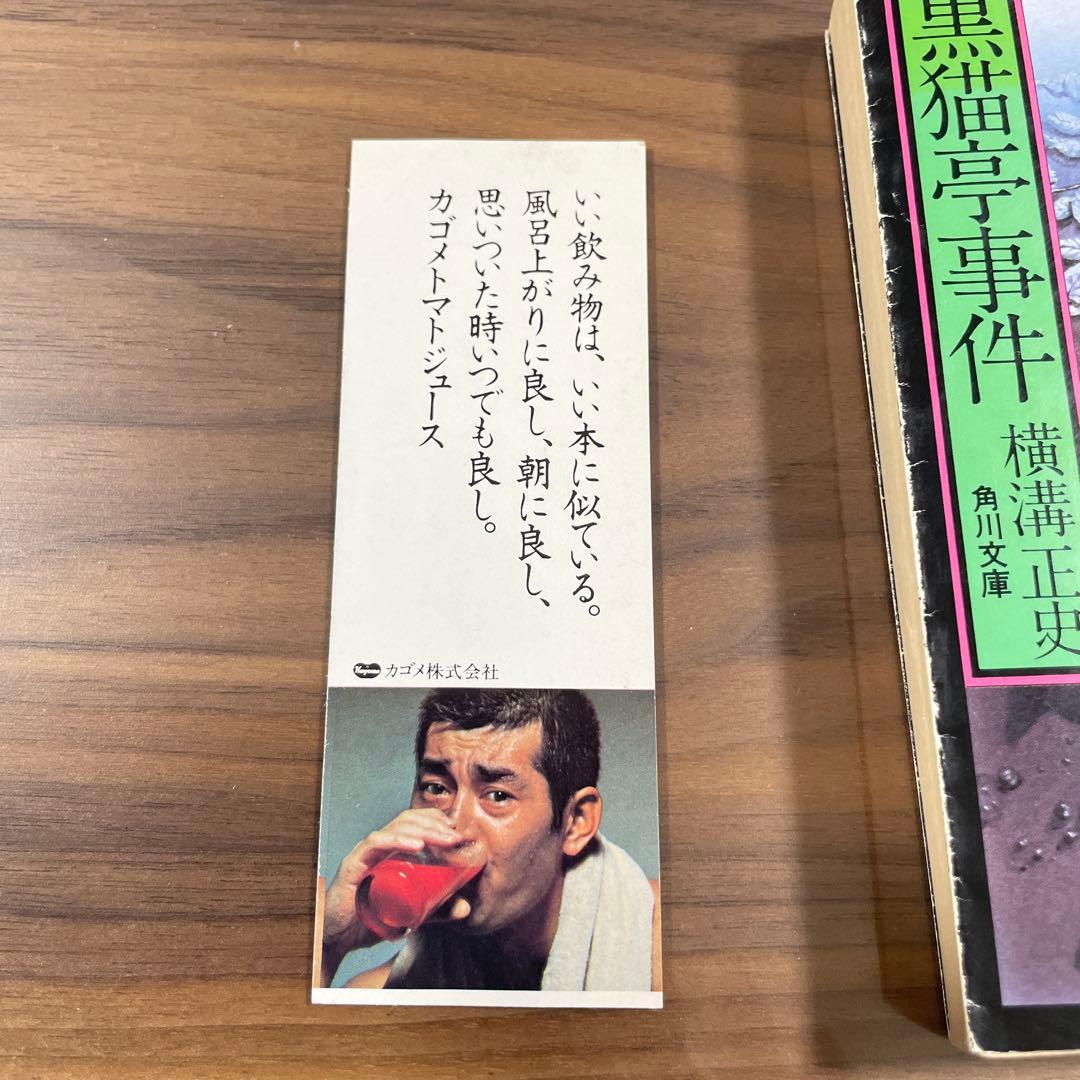 いい飲み物は、いい本に似ている。
風呂上がりに良し、朝に良し、
思いついた時いつでも良し。
カゴメトマトジュース
Kagome カゴメ株式会社
黒猫亭事件
横溝正史
角川文庫